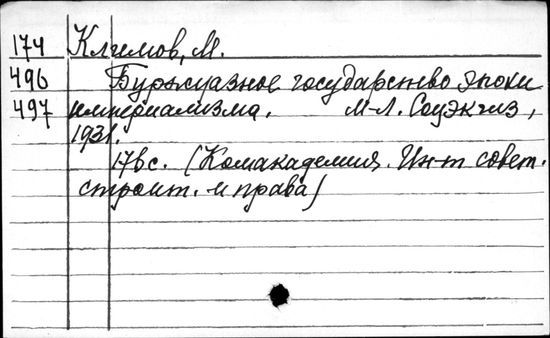 174 Климов, М.
496 Буржуазное государство эпохи
497 империализма. М-Л. Соцэкгиз,
1931.
176 с. (Комакадемия. Ин-т совет.
строит. и права)